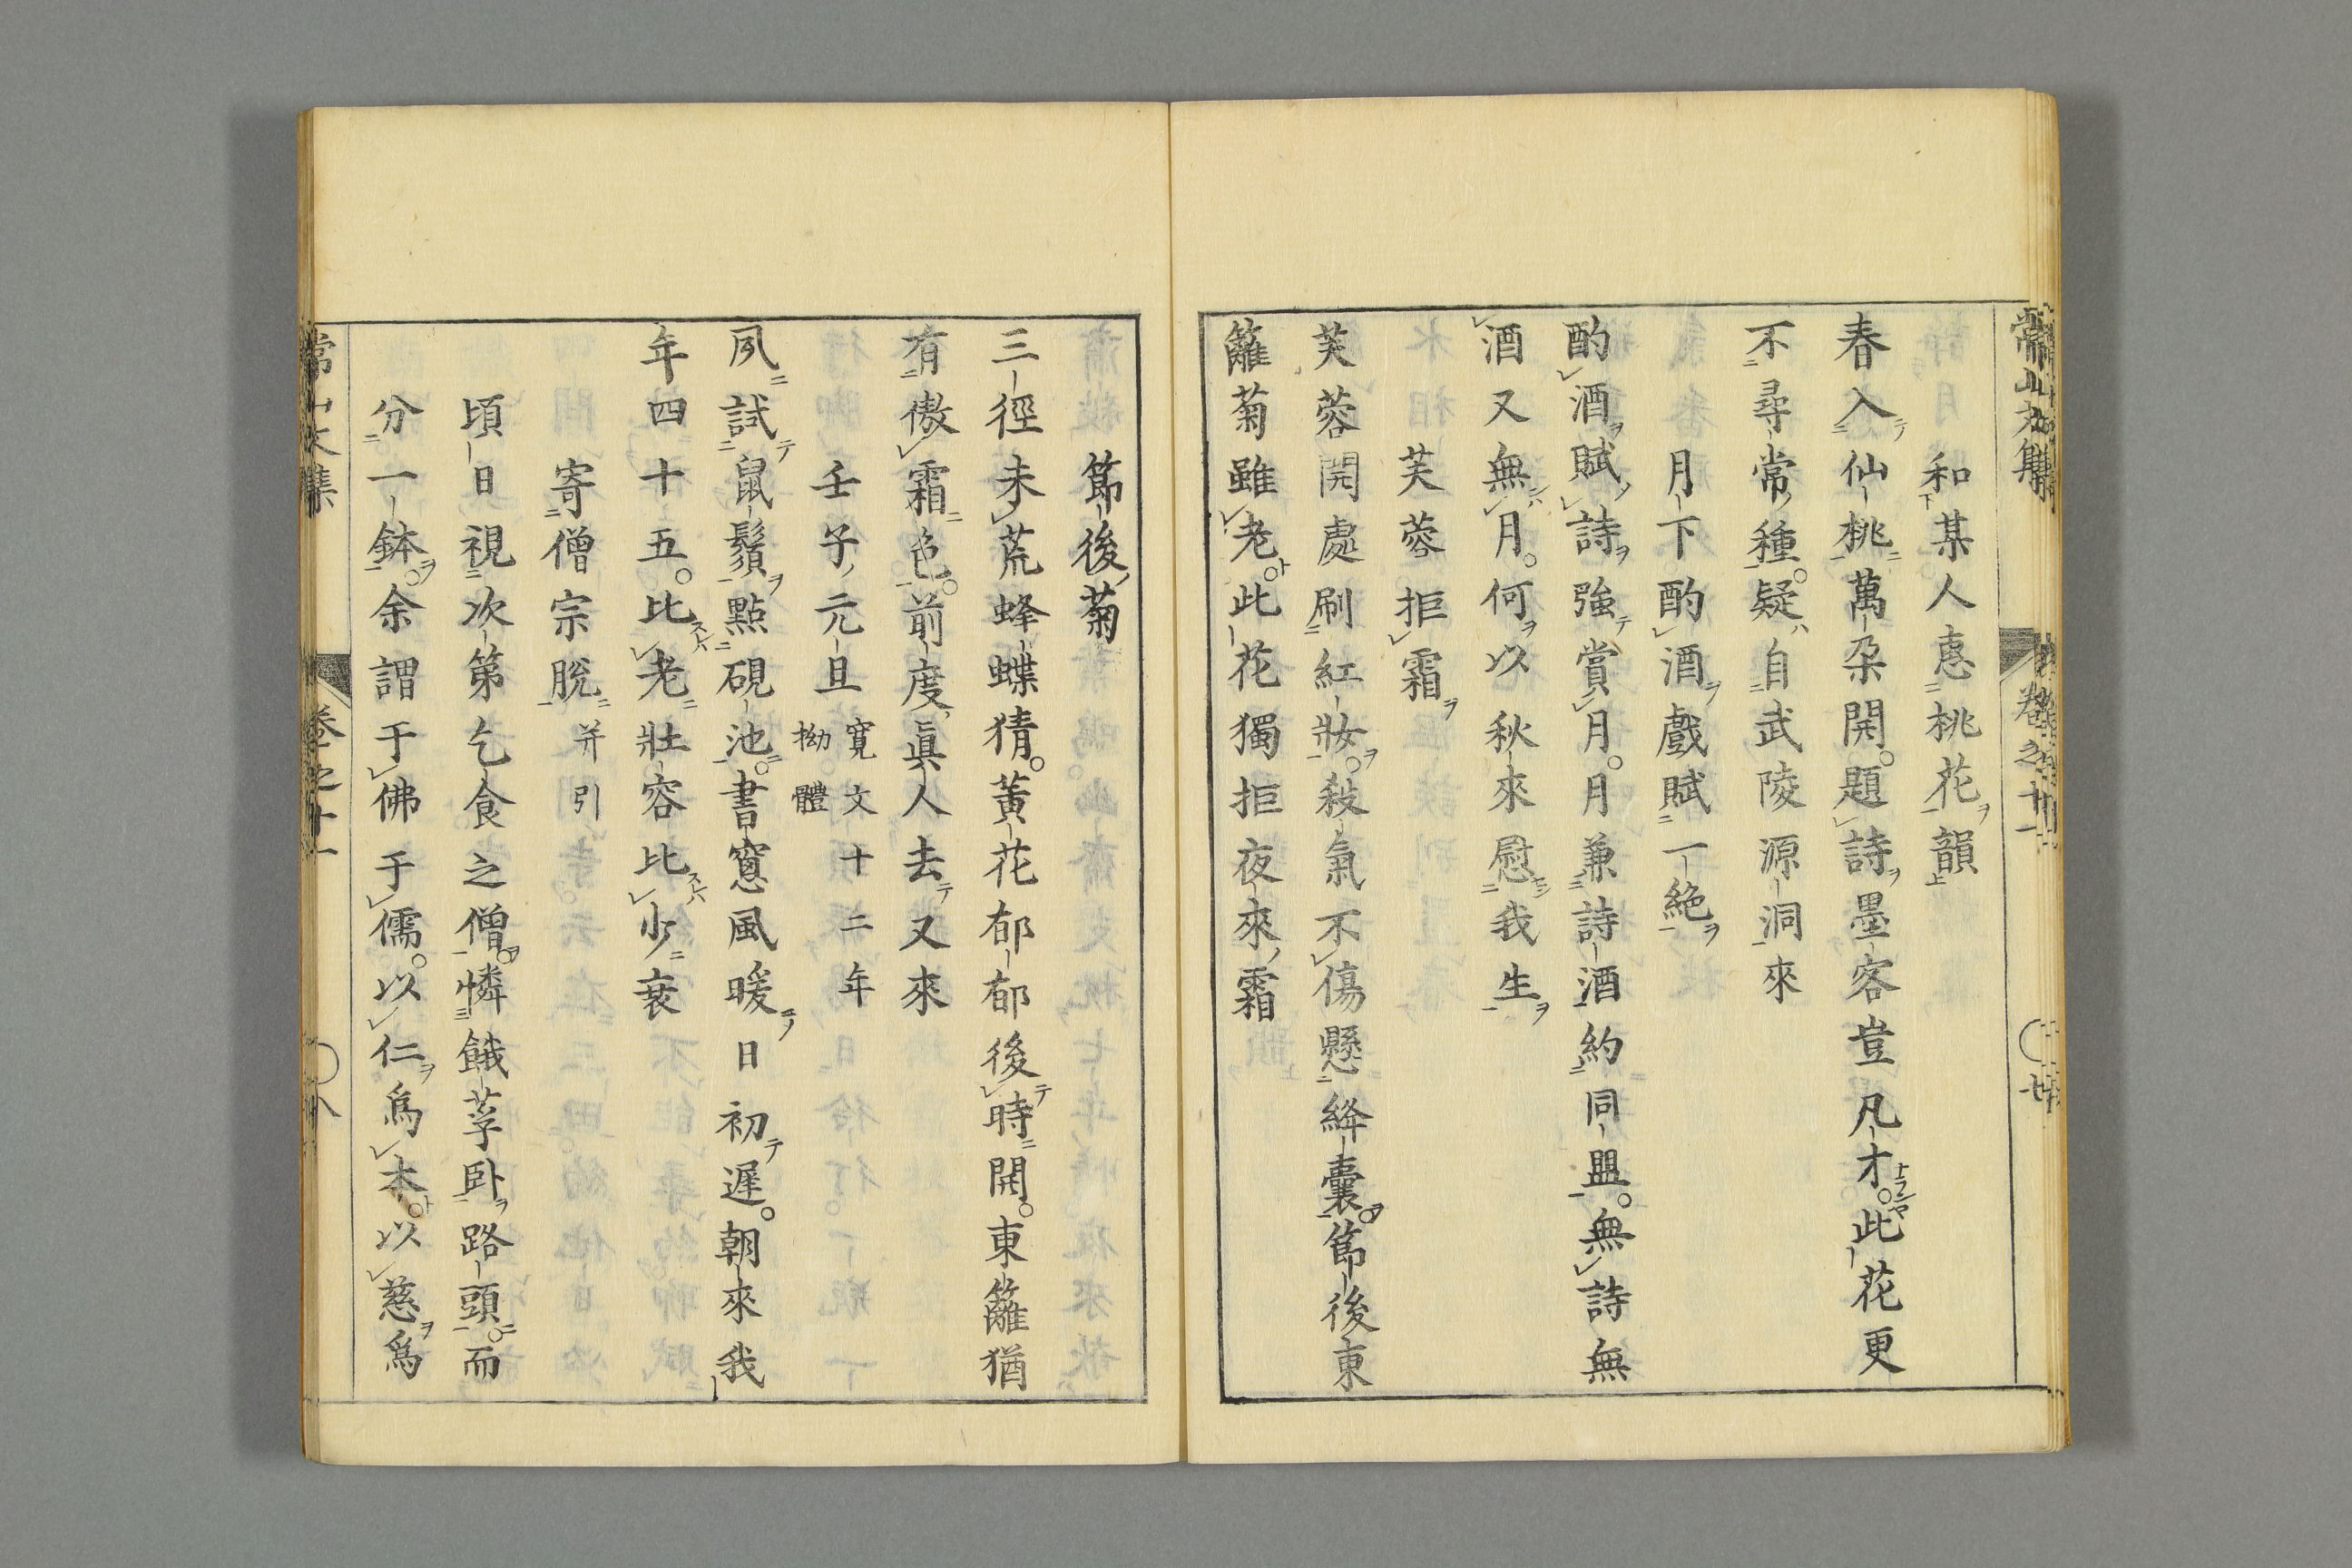 和某人惠桃花韻
春入仙桃萬朶開。題詩墨客豈凡才。此花更
不尋常種。疑自武陵源洞來
月下酌酒戲賦一絶
酌酒賦詩強賞月。月兼詩酒約同盟。無詩無
酒又無月。何以秋來慰我生
芙蓉拒霜
芙蓉開處刷紅妝。殺氣不傷懸絳囊。節後東
籬菊雖老。此花獨拒夜來霜
節後菊
三徑未荒蜂蝶猜。黃花郁郁後時開。東籬猶
有傲霜色。前度眞人去又來
壬子元旦 寬文十二年
拗體
夙試鼠鬚點硯池。書窻風暖日初遲。朝來我
年四十五。比老壯容比少衰
寄僧宗脫 并引
頃日視次第乞食之僧。憐餓莩臥路頭。而
分一鉢。余謂于佛于儒。以仁爲本。以慈爲
常山文集
卷之十一
八